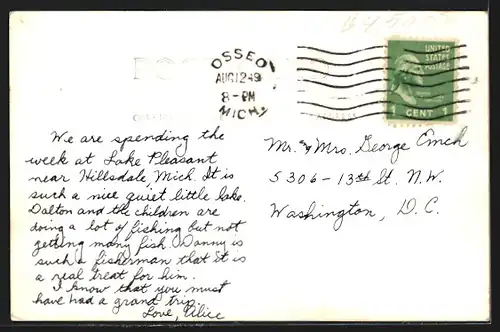 OSSEO
AUG 12 49
8-PM
MICH.
UNITED
STATES
POSTAGE
1 CENT 1
We are spending the
week at Lake Pleasant
near Hillsdale, Mich. It is
such a nice quiet little lake.
Dalton and the children are
doing a lot of fishing but not
getting many fish. Danny is
such a fisherman that it is
a real treat for him.
I know that you must
have had a grand trip.
Love, Alice
Mr. & Mrs. George Emch
5306-13th St. N.W.
Washington, D.C.